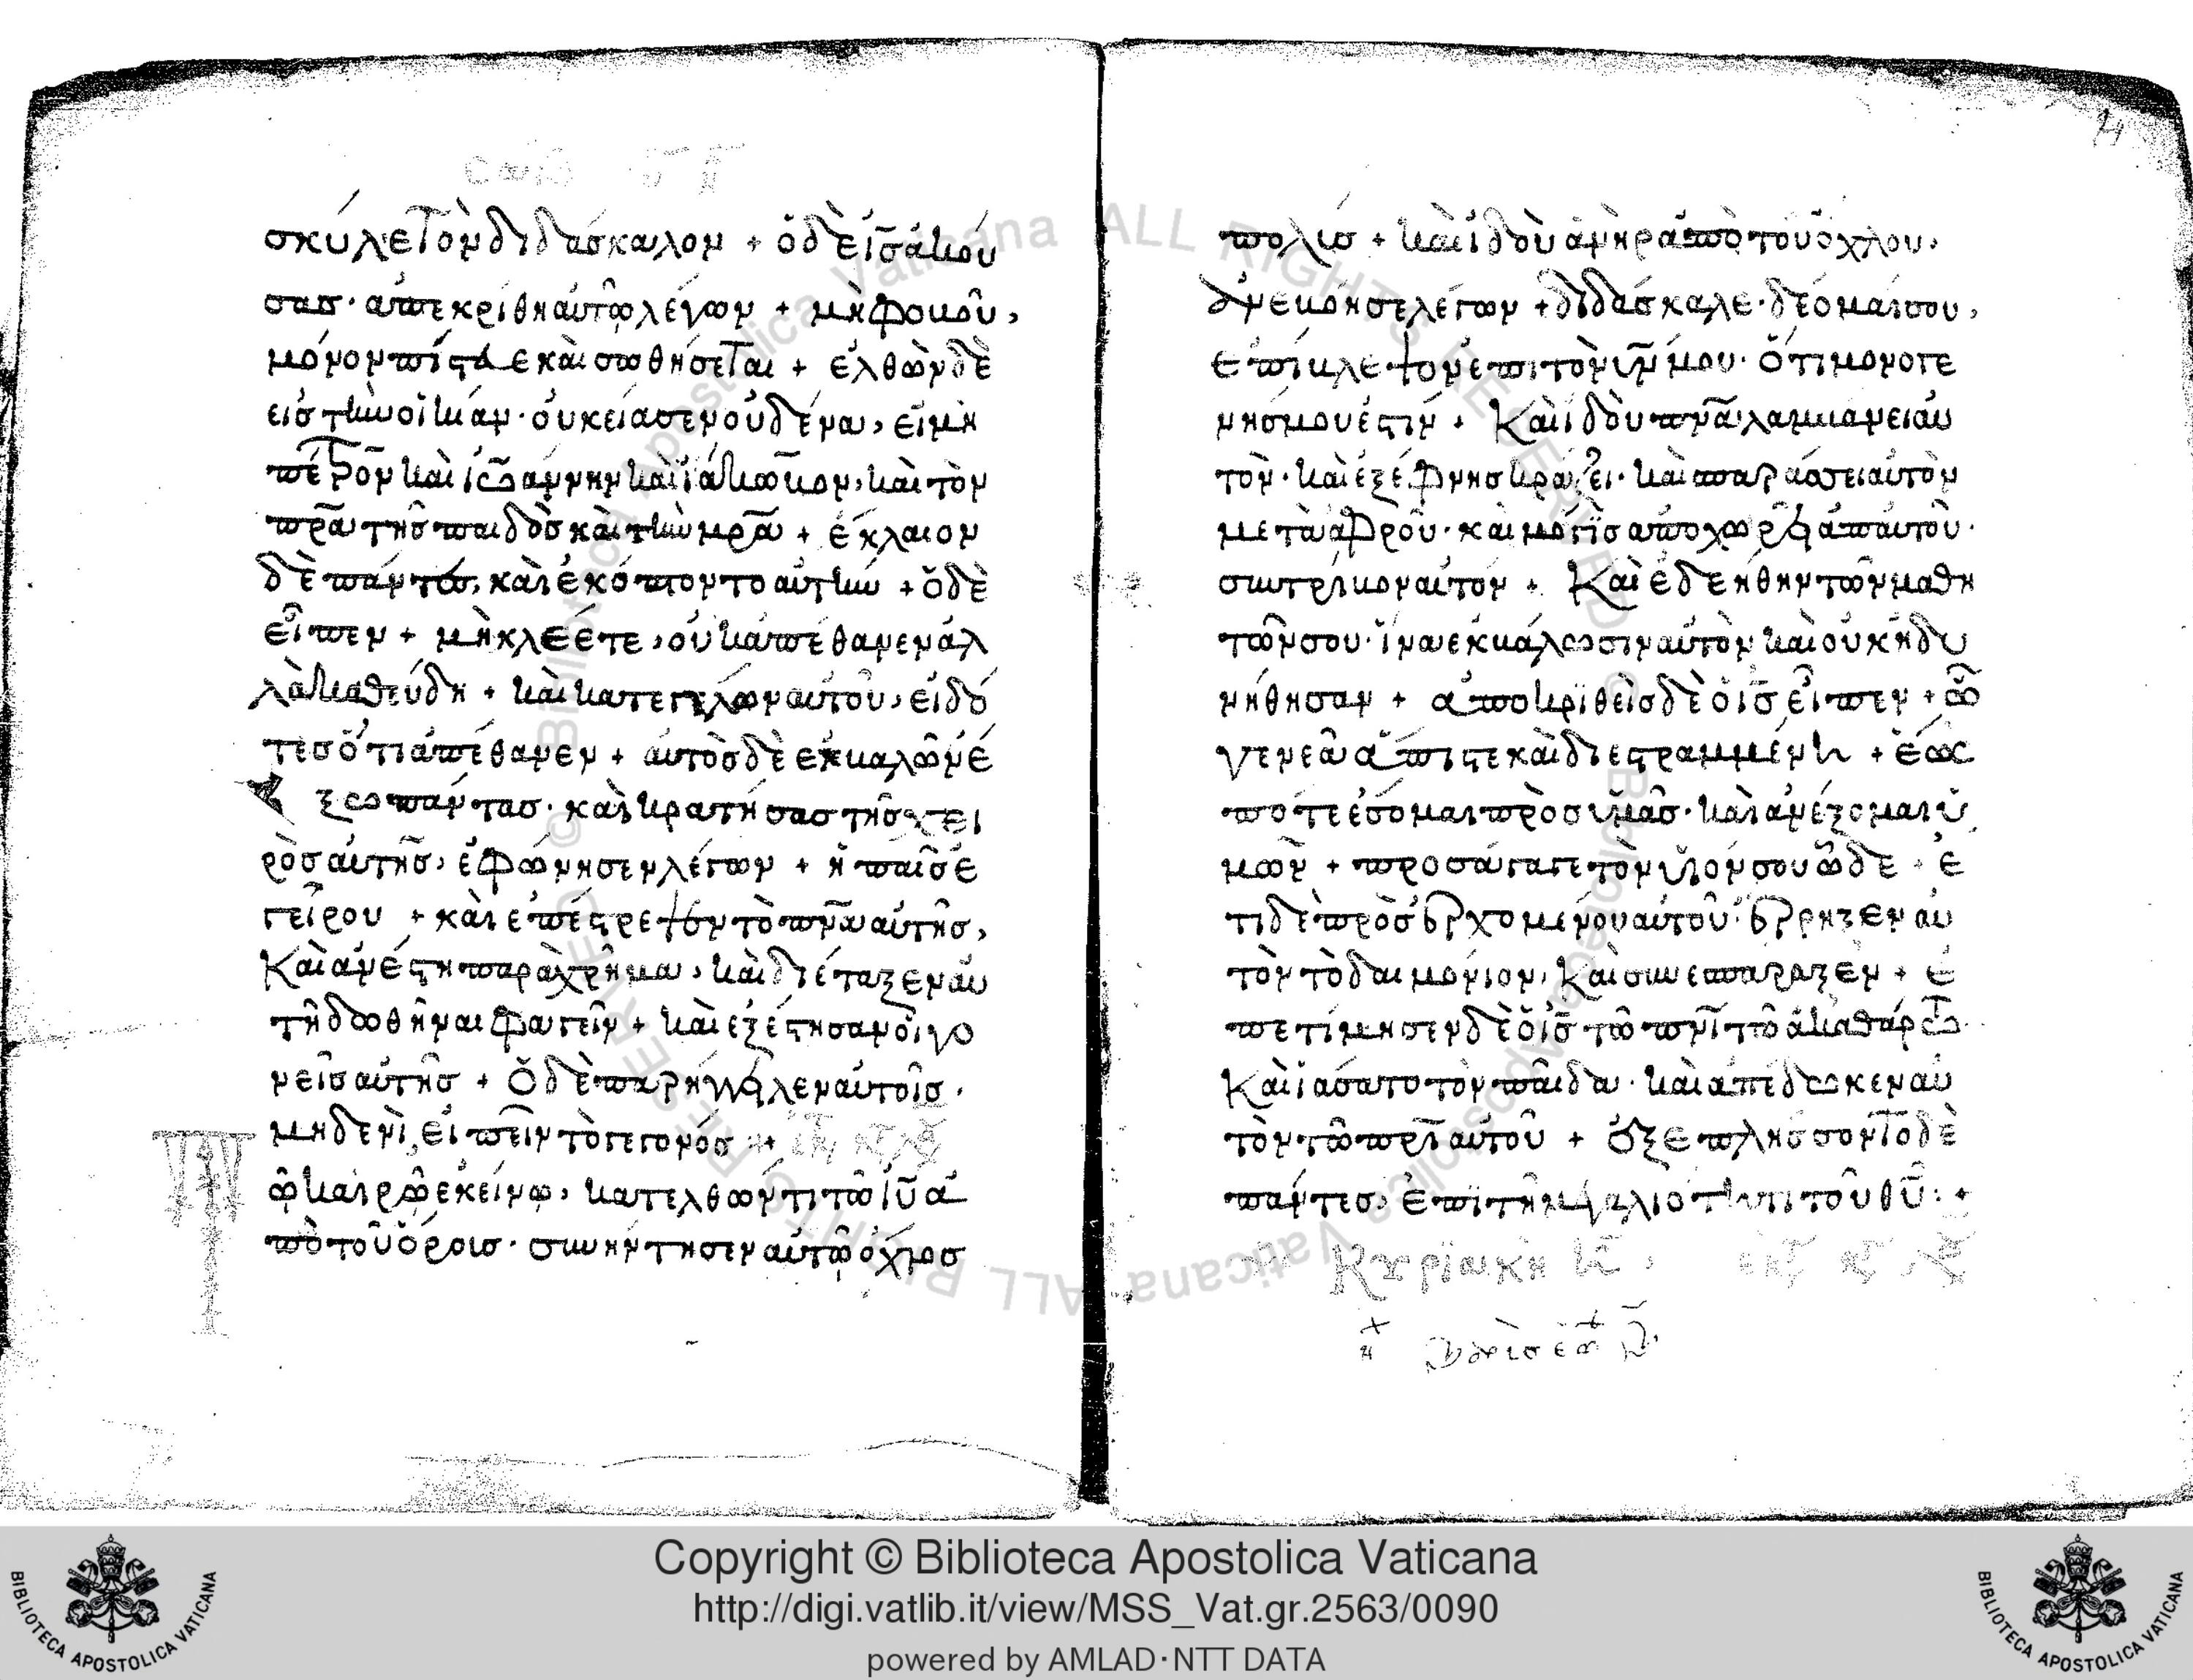 σκύλε τὸν διδάσκαλον + ὁ δὲ ις̅ ἀκού
σας· ἀπεκρίθη αὐτῶ λέγων + μὴ φοβοῦ,
μόνον πίστευε καὶ σωθήσεται + ἐλθὼν δὲ
εἰσ τὴν οἰκίαν· οὐκ είασεν οὐδένα, εἰ μὴ
πέτρον καὶ ἰωάννην καὶ ἰάκωβον, καὶ τὸν
πρ̅α τῆσ παιδὸσ καὶ τὴν μρ̅α + ἔκλαιον
δὲ πάντεσ, καὶ ἐκόπτοντο αὐτὴν + ὁ δὲ
εἶπεν + μὴ κλέετε, οὐκ ἀπέθανεν ἀλ
λὰ καθεύδη + καὶ κατεγέλων αὐτοῦ, εἰδό
τεσ ὅτι ἀπέθανεν + αὐτὸσ δὲ ἐκβαλὼν έ
ξω πάντασ· καὶ κρατήσασ τῆσ χει
ρὸσ αὐτῆσ, ἐφώνησεν λέγων + ἡ παῖσ ἐ
γείρου + καὶ ἐπέστρεψεν τὸ πν̅α αὐτῆσ,
Καὶ ἀνέστη παραχρῆμα, καὶ διέταξεν αὐ
τῆ δοθῆναι φαγεῖν + καὶ ἐξέστησαν οἱ γο
νεῖσ αὐτῆσ + Ὁ δὲ παρήγγειλεν αὐτοῖσ·
μηδενὶ εἰπεῖν τὸ γεγονόσ +
ῶ καιρῶ ἐκείνω, κατελθώντι τῶ ιυ̅ ἀ
πὸ τοῦ ὄρουσ· συνήντησεν αὐτῶ ὄχλοσ
πολύσ + καὶ ἰδοὺ ἀνὴρ ἀπὸ τοῦ ὄχλου,
ἀνεβόησε λέγων + διδάσκαλε· δέομαι σου,
ἐπίβλεψον ἐπι τὸν υν̅ μου· ὅτι μονογε
νήσ μου ἐστίν + Καὶ ἰδοὺ πν̅α λαμβανει αὐ
τὸν· καὶ ἐξέφνησ κράζει· καὶ σπαράσσει αὐτὸν
μετὰ ἀφροῦ· καὶ μόγϊσ ἀποχωρεῖ ἀπ αὐτοῦ·
συντρίβον αὐτόν + Καὶ ἐδεήθην τῶν μαθη
τῶν σου· ἵνα ἐκβάλωσιν αὐτὸν καὶ οὐκ ἠδυ
νήθησαν + ἀποκρϊθεὶσ δὲ ὁ ις̅ εἶπεν + ὦ
γενεὰ ἄπιστε καὶ διεστραμμένη + ἕως
πότε ἔσομαι πρὸσ ὑμᾶσ· καὶ ἀνέξομαι ὑ
μῶν + προσάγαγε τὸν υἱόν σου ὧδε + ἔ
τι δὲ προσερχομένου αὐτοῦ· ἔρρηξεν αὐ
τὸν τὸ δαιμόνιον, Καὶ συνεσπαραξεν + ἐ
πετίμησεν δὲ ὁ ις̅ τῶ πν̅ι τῶ ἀκαθάρτω
Καὶ ἰάσατο τὸν παῖδα· καὶ ἀπέδωκεν αὐ
τὸν τῶ πρ̅ι αὐτοῦ + ἐξεπλήσσοντο δὲ
πάντεσ, ἐπὶ τῆ μεγαλιότητι τοῦ θυ̅ +
Κυριακὴ
Copyright © Biblioteca Apostolica Vaticana
http://digi.vatlib.it/view/MSS_Vat.gr.2563/0090
powered by AMLAD·NTT DATA
BIBLIOTECA APOSTOLICA VATICANA
BIBLIOTECA APOSTOLICA VATICANA